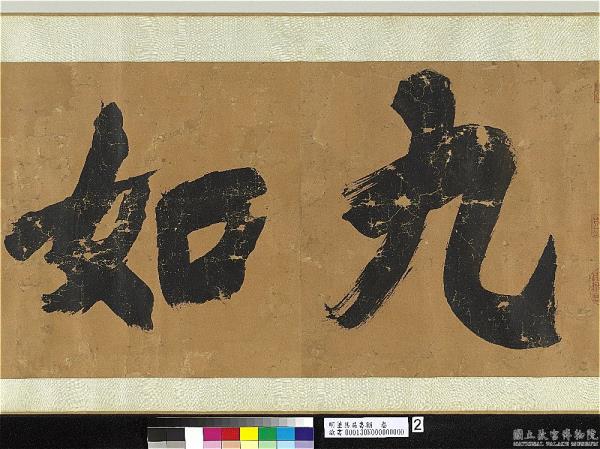 九如
故書000130N000000000
2
國立故宮博物院
NATIONAL PALACE MUSEUM